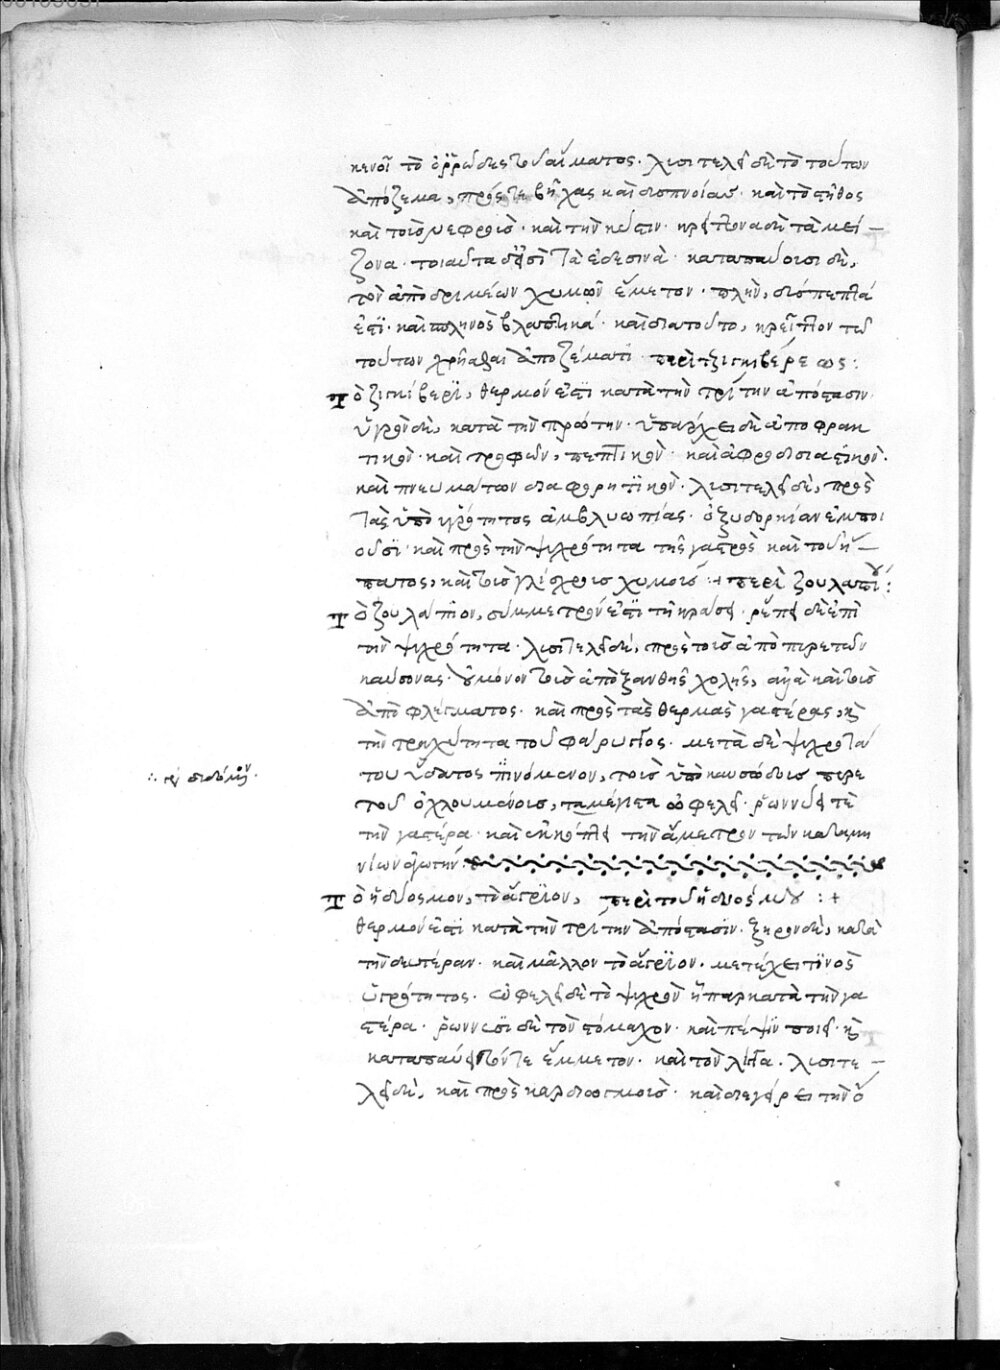 κενοῖ τὸ ὀρρῶδες τοῦ αἵματος· λυσιτελεῖ δὲ τὸ τούτων
ἀπόζεμα, πρός τε βῆχας καὶ δισπνοίασ· καὶ τὸ στῆθος
καὶ τοὶσ νεφροὶσ· καὶ τὴν κύστιν· κρείττονα δὲ τὰ μεί
ζονα· τοιαῦτα δὲ εἰσὶ τὰ ἐδεσινά· καταπαύουσι δὲ,
τὸν ἀπὸ δριμέων χυμῶν ἔμετον· πλὴν, δισπεπτά
ἐστι· καὶ πληνὸς βλαπτικά· καὶ διατοῦτο, κρεῖττον τῶ
τούτων χρῆσθαι ἀποζέματι περὶ τζιγκιβέρεως:
Τὸ ζιγκίβερι, θερμόν ἐστι κατὰ τὴν τρίτην ἀπόστασιν·
ὑγρὸν δὲ, κατὰ τὴν πρώτην· ὑπάρχει δὲ ἀποφρακ
τικὸν· καὶ τροφῶν, πεπτικὸν· καὶ ἀφροδισιαστικὸν·
καὶ πνευμάτων διαφορητικὸν· λισιτελεῖ δὲ, πρὸς
τὰς ὑπὸ ὑγρότητος ἀμβλυωπίας· ὀξυδορκίαν ἐμποι
οῦσι· καὶ πρὸς τὴν ψιχρότητα τῆς γαστρὸς καὶ τοῦ ἥ
πατος, καὶ τοὶσ γλίσχροισ χυμοίσ :+ περὶ ζουλαπίου:
Τὸ ζουλάπιον, σύμμετρόν ἐστι τῆ κράσει· ῥέπει δὲ ἐπὶ
τὴν ψιχρότητα· λισιτελεῖ δὲ, πρὸς τοὶσ ἀπὸ πιρετῶν
καύσονας· οὐ μόνον τοὶσ ἀπὸ ξανθῆς χολῆς, ἀλλὰ καὶ τοὶσ
ἀπὸ φλέγματος· καὶ πρὸς τὰς θερμὰς γαστέρας, κὶ
τὴν τραχύτητα τοῦ φάρυγγος· μετὰ δὲ ψιχροῦ
του ὕδατος πινόμενον, τοισ ὑπὸ καυσώδοισ πιρε
τοῦ ὀχλουμένοισ, τα μέγιστα ὠφελεῖ· ῥωννύει τὲ
τὴν γαστέρα· καὶ ἐκκόπτει τὴν ἄμετρον τῶν καταμη
νίων
Τὸ ἡδύοσμον, τὸ ἄγριον, περὶ τοῦ ἡδυόσμου :+
θερμόν ἐστι κατὰ τὴν τρίτην ἀπόστασιν· ξηρὸν δὲ, κατὰ
τὴν δευτέραν· καὶ μᾶλλον τὸ ἄγριον· μετέχει τινὸς
ὑγρότητος· ὠφελεῖ δὲ τὸ ψιχρὸν ἧπαρ κατὰ τὴν γα
στέρα· ῥώννυσι δὲ τὸν στόμαχον· καὶ πέψιν ποιεῖ· κὶ
καταπαύει τόν τε ἔμμετον· καὶ τὸν λίγγα· λισιτε
λεῖ δὲ, καὶ πρὸς καρδιωγμοὶσ· καὶ διεγείρει τὴν ὄ